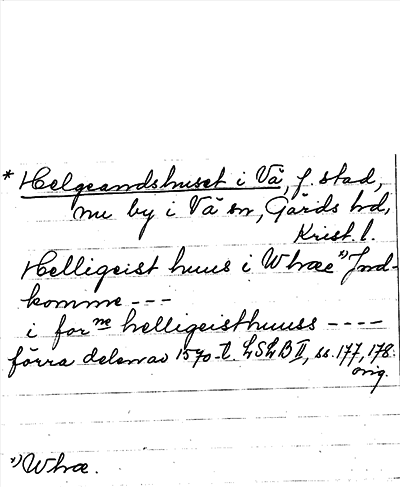 * Helgeandshuset i Vä, f. stad,
nu by i Vä sn, Gärds hd,
Krist. l.
Helligeist huus i Whæe *) Ind-
komme ---
i forne helligeisthuuss ----
förra delen av 1570-t. LSLB II, ss. 177, 178.
orig.
*) Whæ.